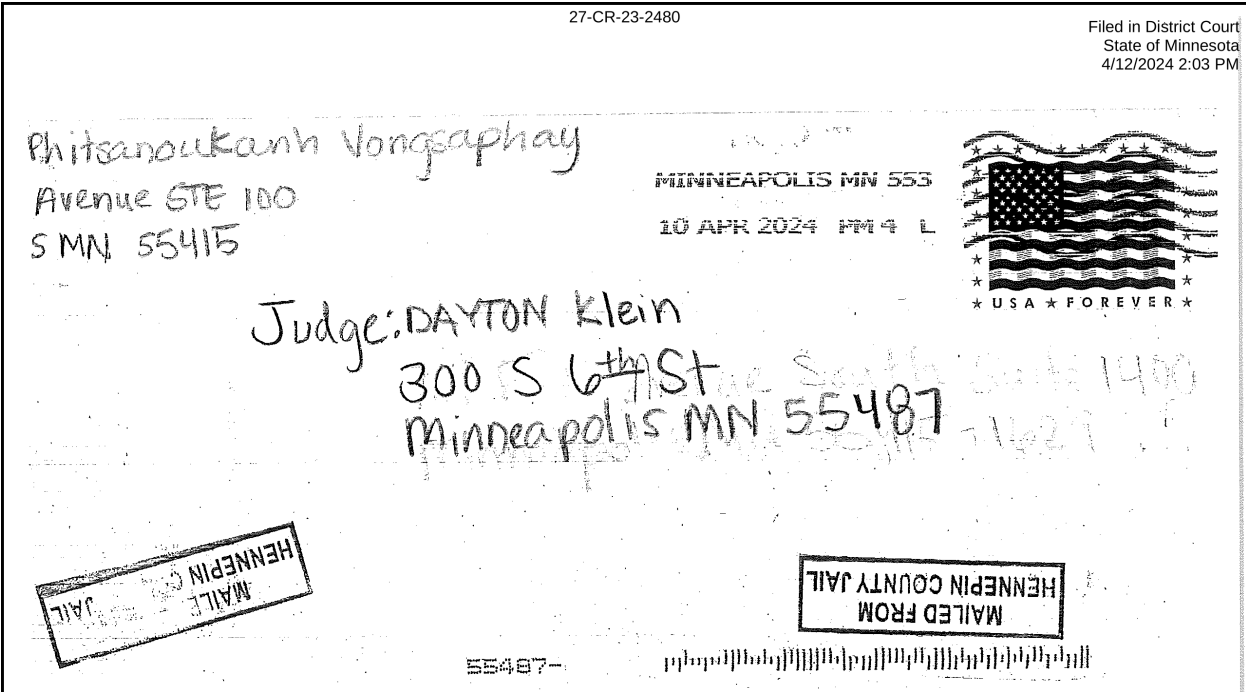 27-CR-23-2480
Filed in District Court
State of Minnesota
4/12/2024 2:03 PM
Phitsanoukanh Vongsaphay
Avenue STE 100
S MN 55415
MINNEAPOLIS MN 553
10 APR 2024 PM 4 L
USA FOREVER
Judge: DAYTON Klein
300 S 6th St
Minneapolis MN 55487
South Suite 1400
MAILE
HENNEPIN
JAIL
MAILED FROM
HENNEPIN COUNTY JAIL
55487-